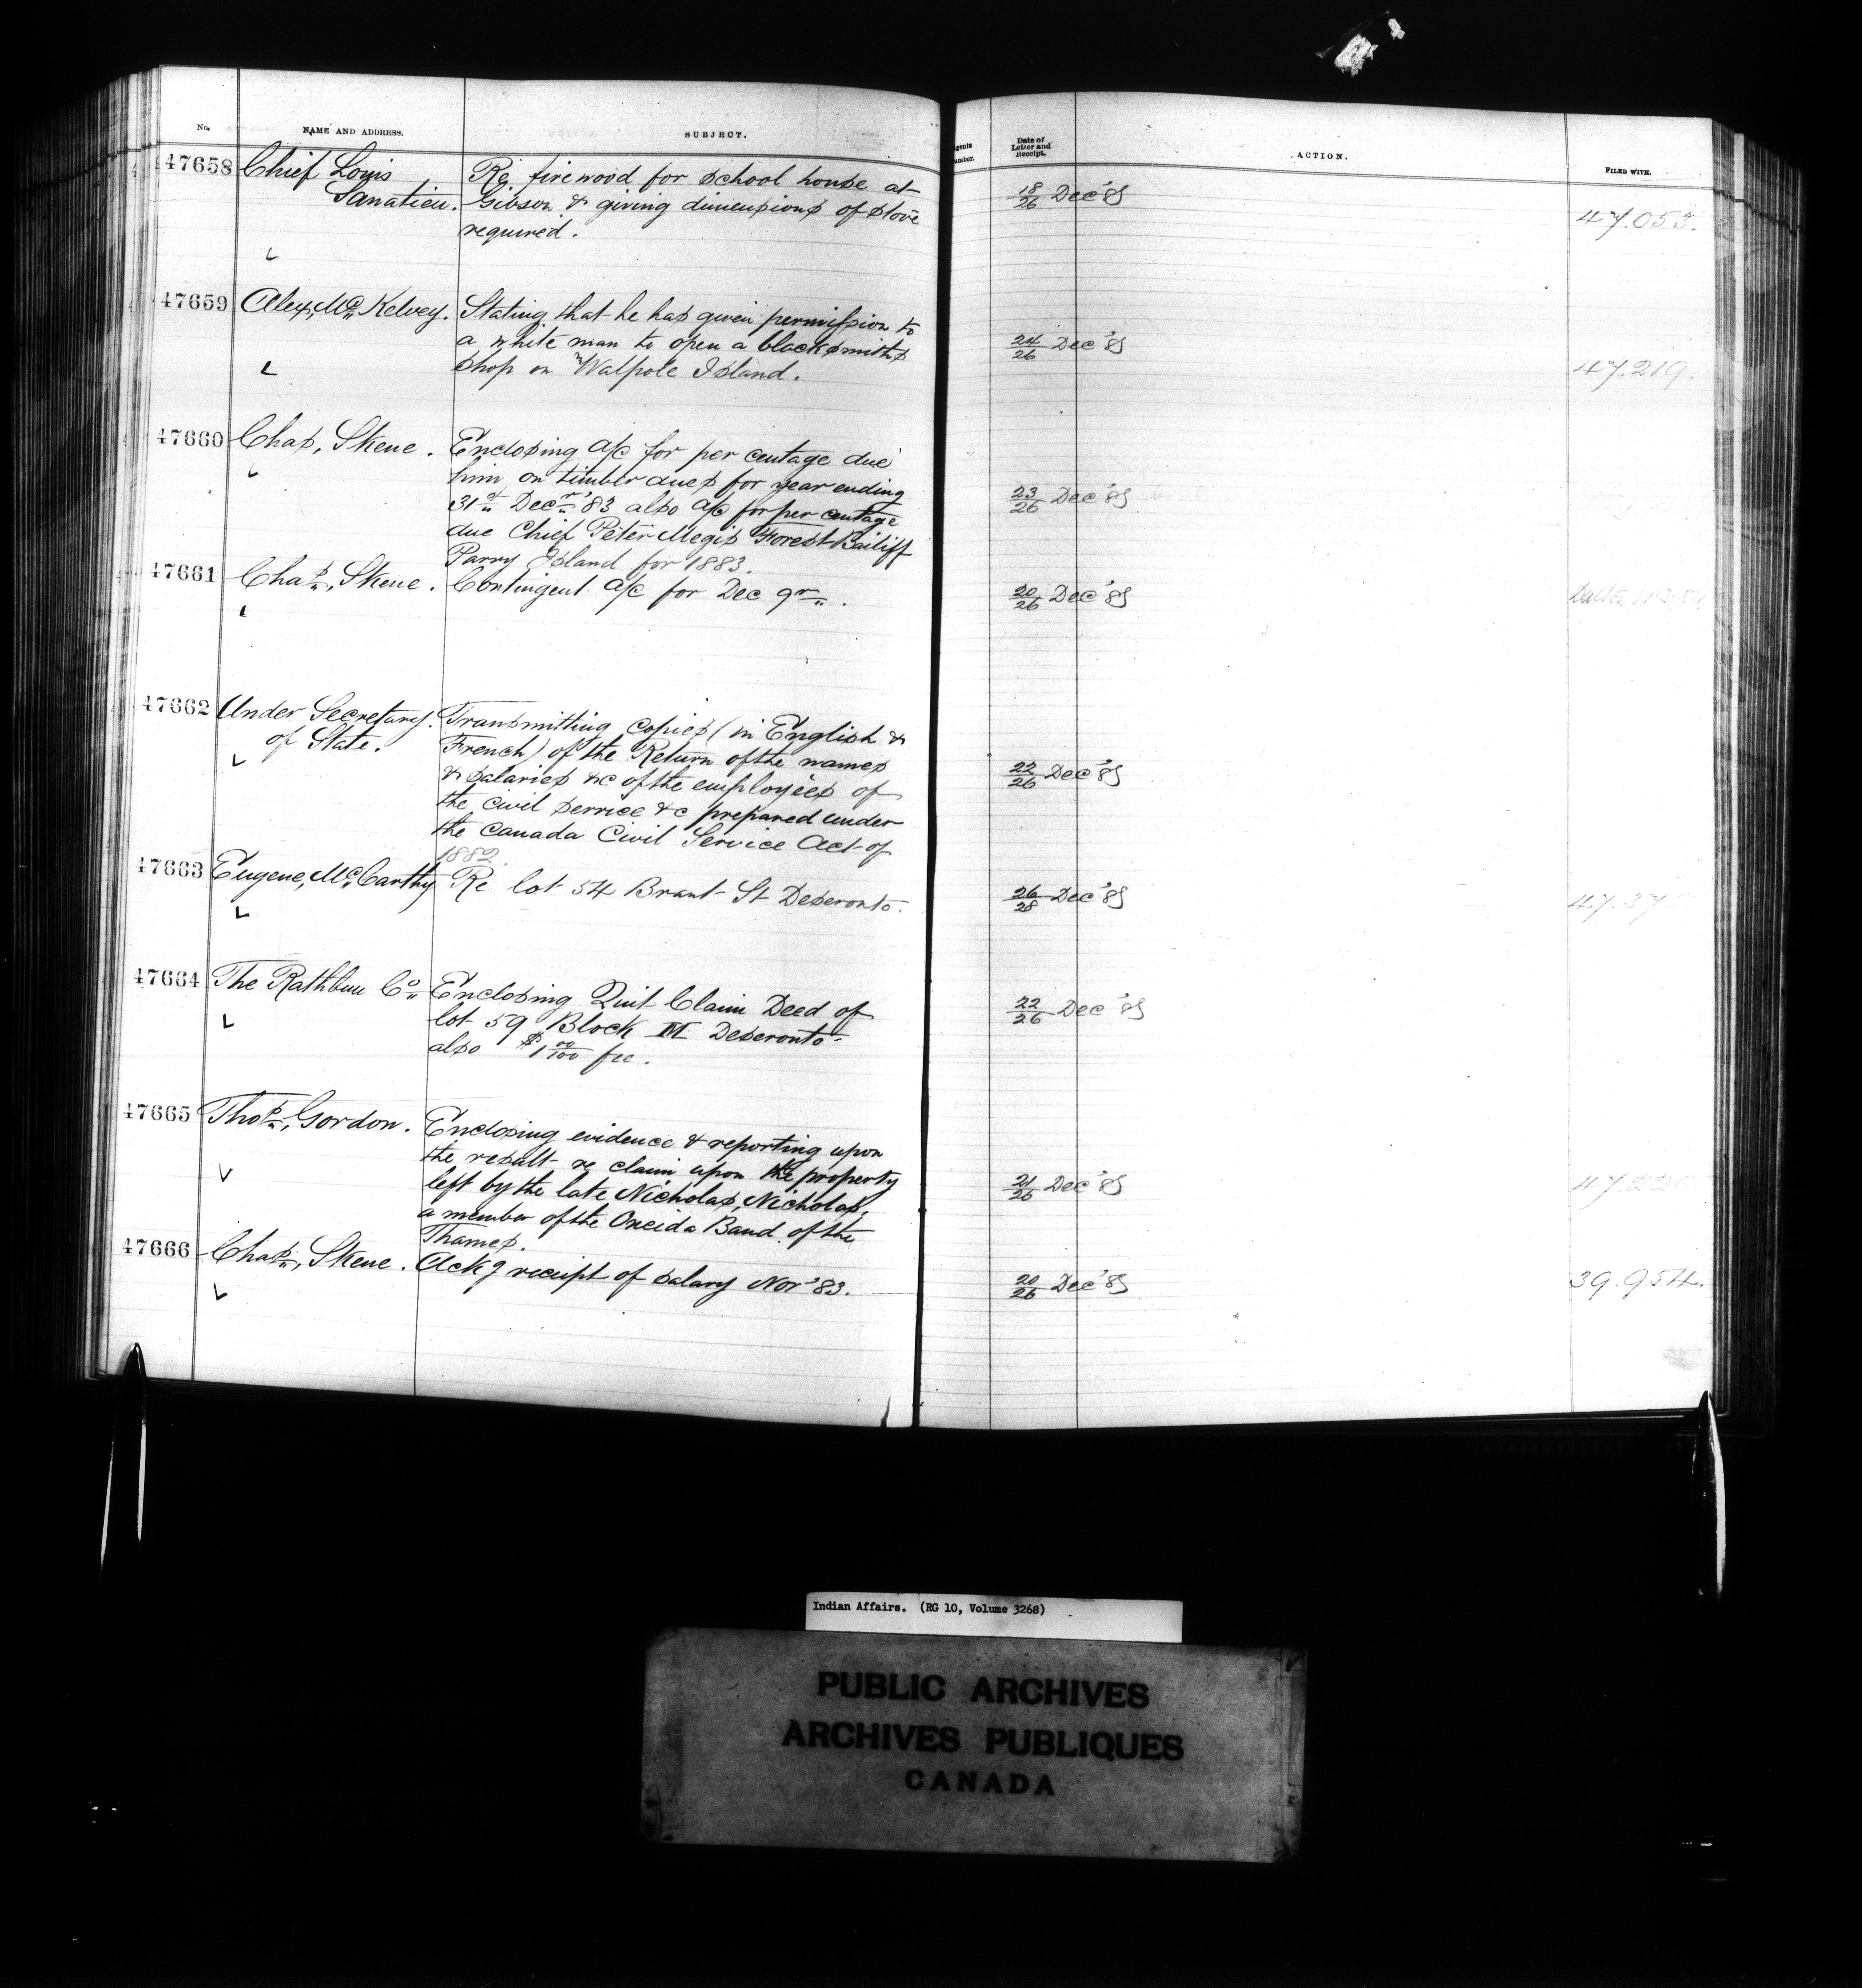 No.
NAME AND ADDRESS.
SUBJECT.
Agents
Number.
Date of
Letter and
Receipt.
ACTION.
FILED WITH.
47658 Chief Louis Re firewood for school house at
Sanatien. Gibson & giving dimensions of stove 18/26 Dec '83
required. 47.053.
47659 Alex, McKelvey. Stating that he has given permission to
a white man to open a blacksmiths 24/26 Dec '83
shop on Walpole Island. 47.219.
47660 Chas, Skene. Enclosing a/c for per centage due
him on timber dues for year ending 23/26 Dec '83
31st Decr '83 also a/c for per centage
due Chief Peter Megis Forest Bailiff
Parry Island for 1883.
47661 Chas, Skene. Contingent a/c for Dec qr. 20/26 Dec '83
47662 Under Secretary. Transmitting copies (in English &
of State. French) of the Return of the names
& salaries &c of the employees of 22/26 Dec '83
the civil service &c prepared under
the Canada Civil Service Act of
1882.
47663 Eugene, McCarthy Re lot 54 Brant St Deseronto. 26/28 Dec '83 47.37
47664 The Rathbun Co Enclosing Quit Claim Deed of
lot 59 Block M Deseronto 22/26 Dec '83
also $1 00/100 fee.
47665 Thos, Gordon. Enclosing evidence & reporting upon
the result re claim upon the property
left by the late Nicholas, Nicholas, 21/26 Dec '83 47.22
a member of the Oneida Band of the
Thames.
47666 Chas, Skene. Ackg receipt of salary Nov '83. 20/26 Dec '83 39.954.
Indian Affairs. (RG 10, Volume 3268)
PUBLIC ARCHIVES
ARCHIVES PUBLIQUES
CANADA